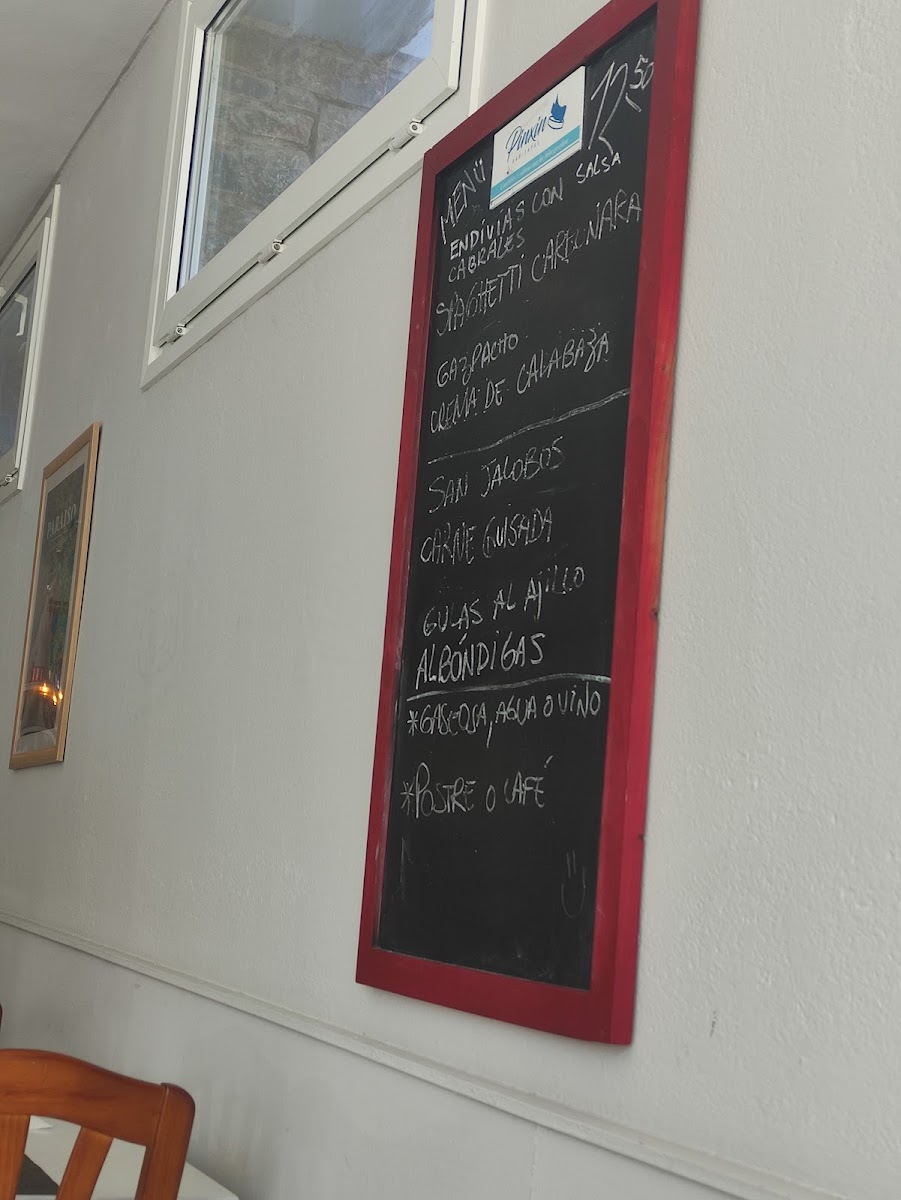 MENÜ
Pinxin
12,50
ENDIVIAS CON SALSA
CABRALES
SPAGHETTI CARBONARA
GAZPACHO
CREMA DE CALABAZA
SAN JACOBOS
CARNE GUISADA
GULAS AL AJILLO
ALBÓNDIGAS
*GASEOSA, AGUA O VINO
*POSTRE O CAFÉ
PARAISO